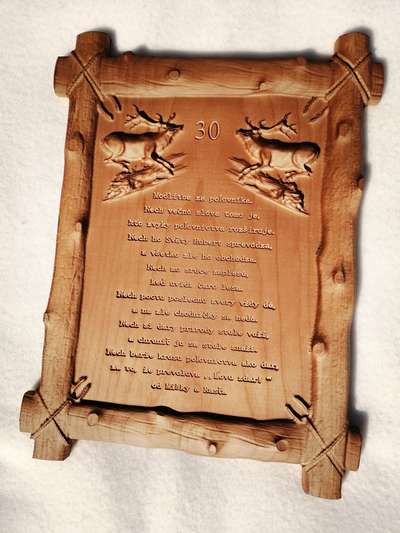 30
Modlitba za poľovníka.
Nech večná sláva tomu je,
kto zvyky poľovníctva rozširuje.
Nech ho Svätý Hubert sprevádza,
a všetko zle ho obchádza.
Nech má srdce
keď uvidí čaro lesa.
Nech poctu poslednú zvery vždy dá,
a na zlé chodníčky sa nedá.
Nech si dary prírody stále váži,
a chrániť ju sa stále snaží.
Nech berie krásu poľovníctva ako dar,
za to, že prevoláva ,,Lovu zdar! "
od Mišky a Rasťa.